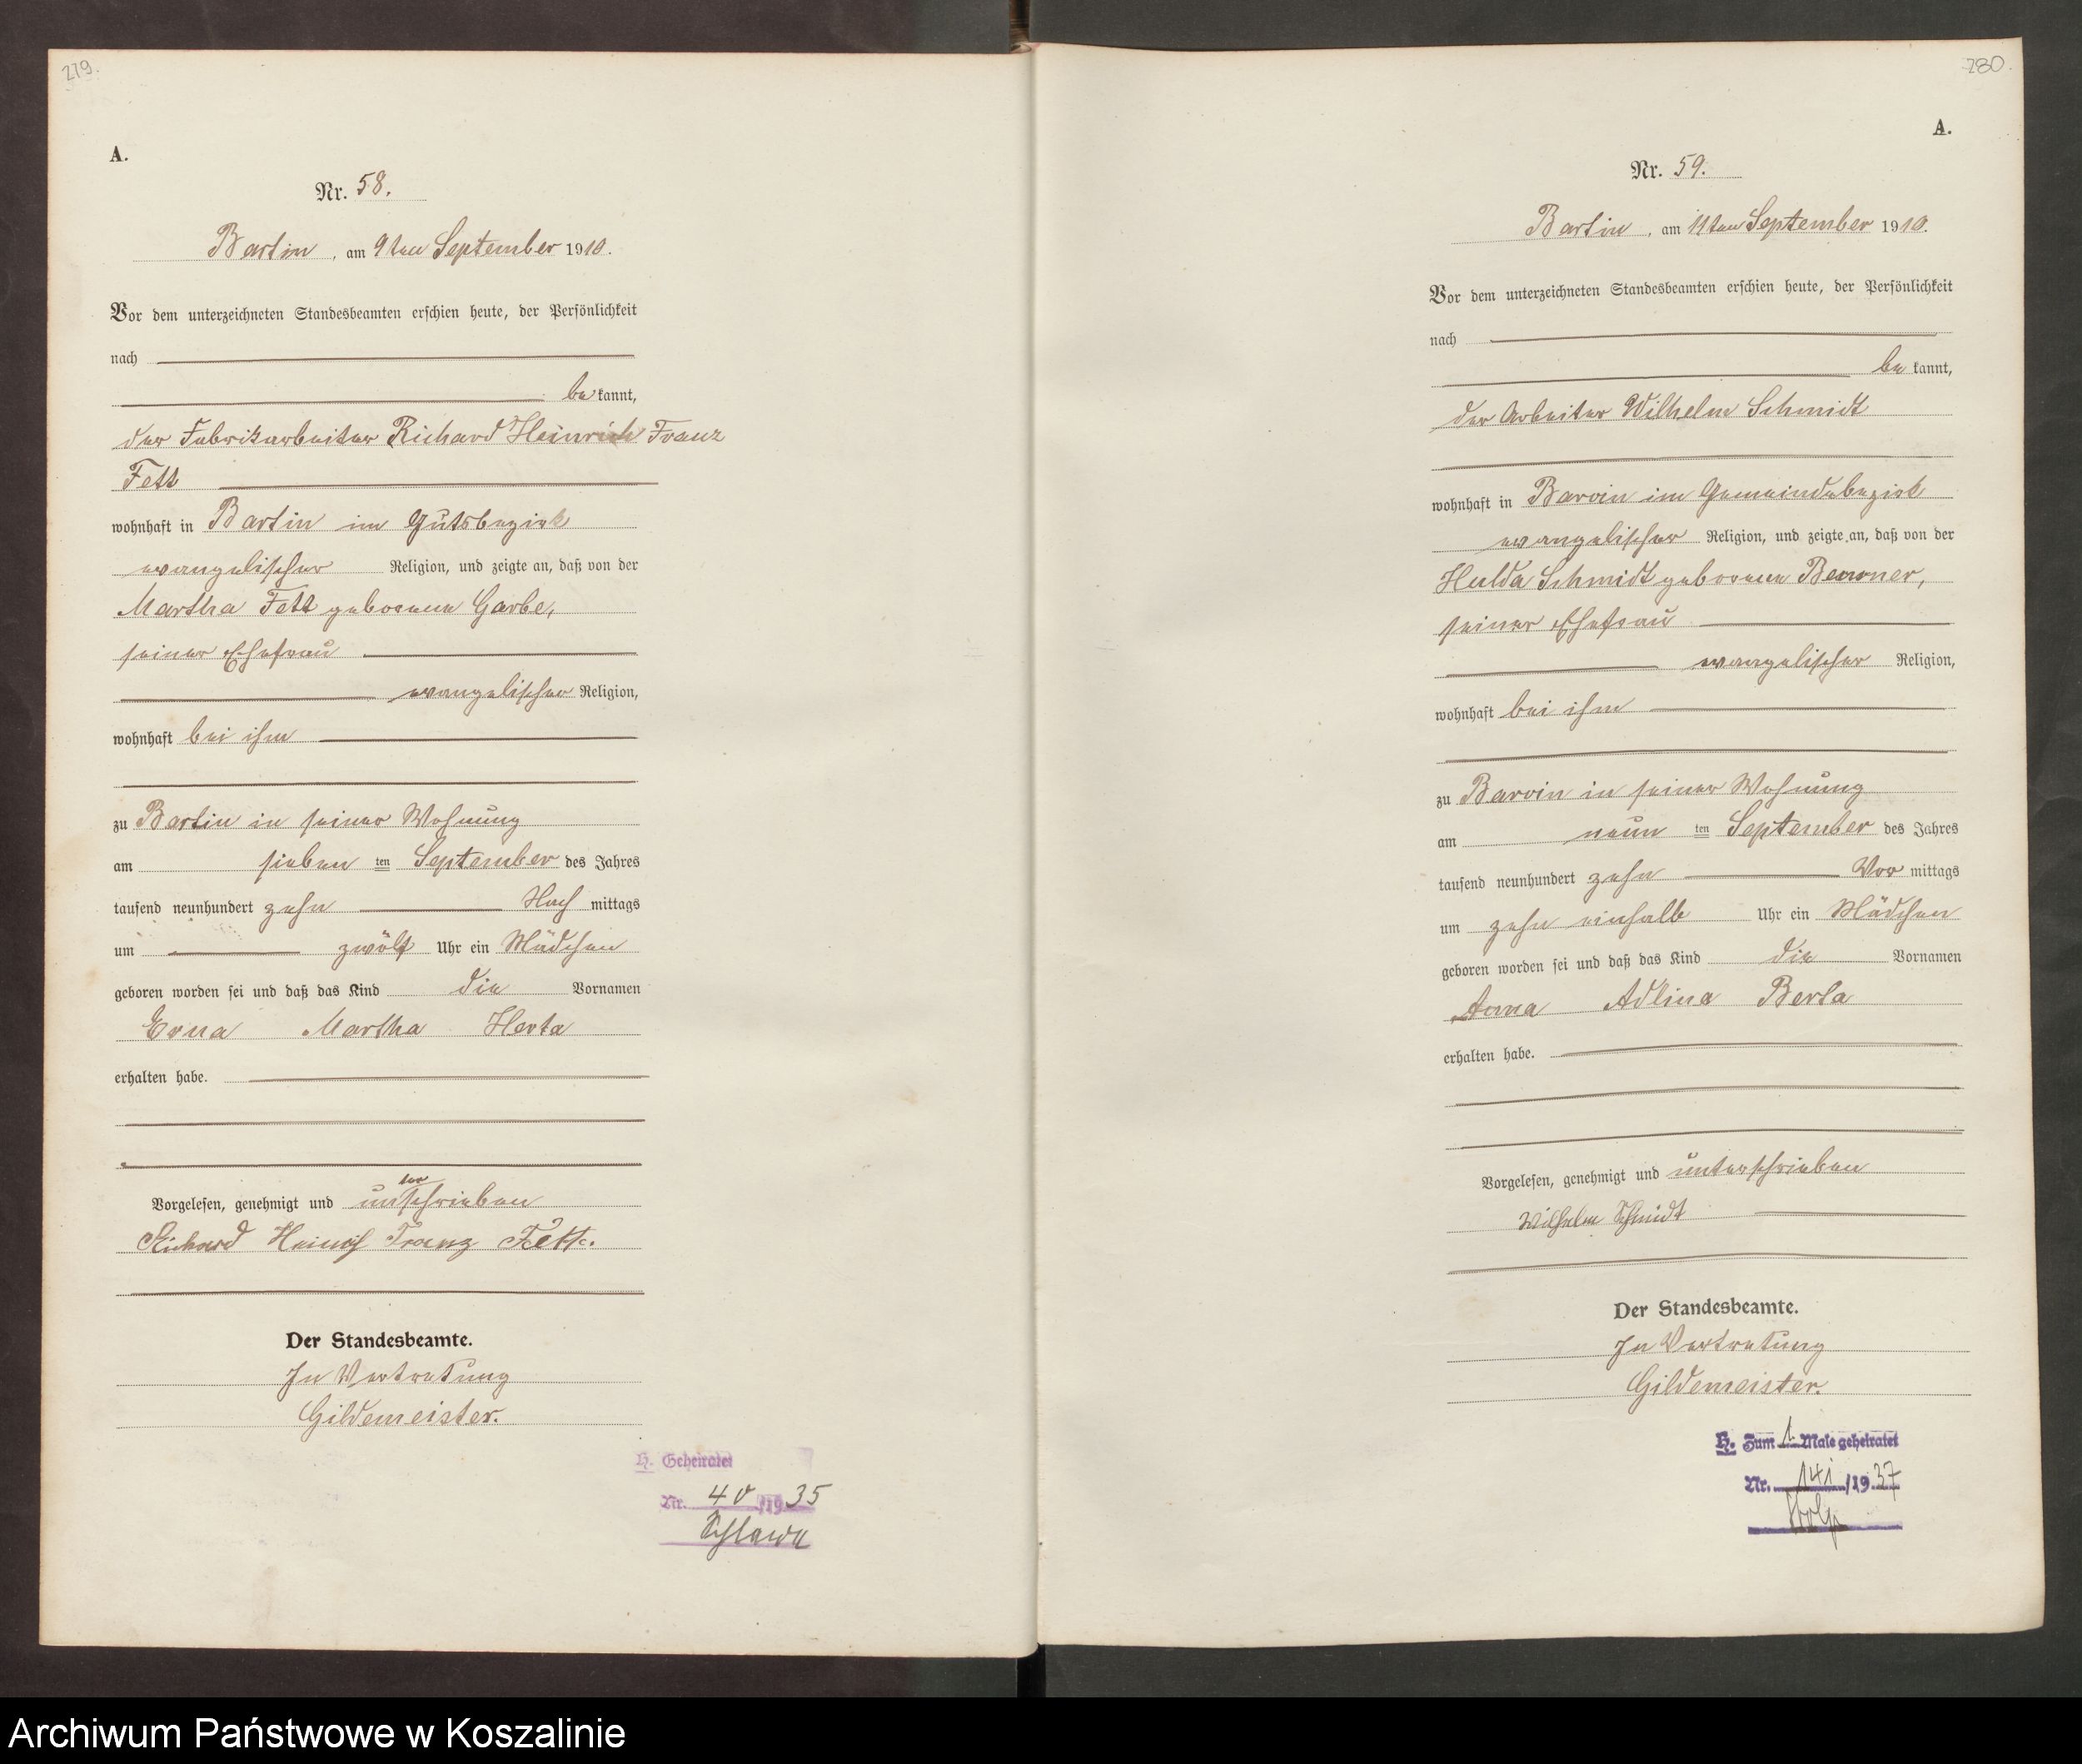 219.
A.
Nr. 58.
Bartin, am 9ten September 1910.
Vor dem unterzeichneten Standesbeamten erschien heute, der Persönlichkeit
nach
be kannt,
der Fabrikarbeiter Richard Heinrich Franz
Fett
wohnhaft in Bartin im Gutsbezirk
evangelischer Religion, und zeigte an, daß von der
Martha Fett geborenen Garbe,
seiner Ehefrau
evangelischer Religion,
wohnhaft bei ihm
zu Bartin in seiner Wohnung
am sieben ten September des Jahres
tausend neunhundert zehn Nach mittags
um zwölf Uhr ein Mädchen
geboren worden sei und daß das Kind die Vornamen
Erna Martha Herta
erhalten habe.
Vorgelesen, genehmigt und unterschrieben
Richard Heinrich Franz Fett.
Der Standesbeamte.
In Vertretung
Gildemeister.
H. Geheiratet
Nr. 40/1935
Schlawe
280.
A.
Nr. 59.
Bartin, am 11ten September 1910.
Vor dem unterzeichneten Standesbeamten erschien heute, der Persönlichkeit
nach
be kannt,
der Arbeiter Wilhelm Schmidt
wohnhaft in Barvin im Gemeindebezirk
evangelischer Religion, und zeigte an, daß von der
Hulda Schmidt geborenen
seiner Ehefrau
evangelischer Religion,
wohnhaft bei ihm
zu Barvin in seiner Wohnung
am neun ten September des Jahres
tausend neunhundert zehn Vor mittags
um zehn einhalb Uhr ein Mädchen
geboren worden sei und daß das Kind die Vornamen
Anna Adlina Berta
erhalten habe.
Vorgelesen, genehmigt und unterschrieben
Wilhelm Schmidt
Der Standesbeamte.
In Vertretung
Gildemeister.
H. Zum 1. Male geheiratet
Nr. 141/1937
Stolp
Archiwum Państwowe w Koszalinie